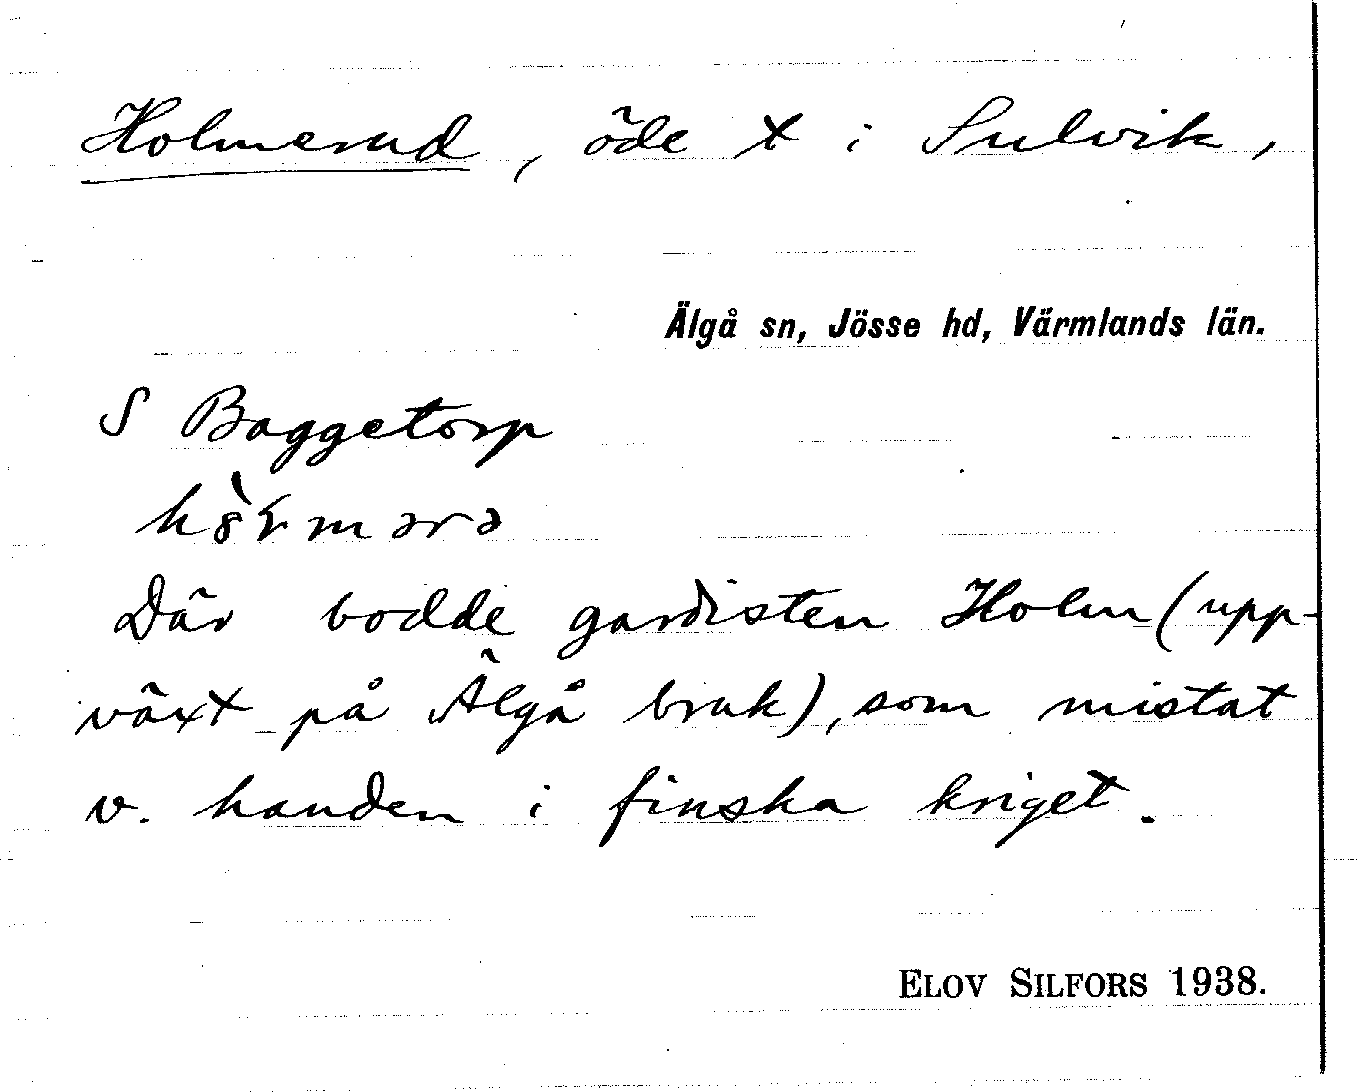 Holmerud, öde x i Sulvik,
Älgå sn, Jösse hd, Värmlands län.
S Baggetorp
Där bodde gardisten Holm (upp-
växt på Älgå bruk), som mistat
v. handen i finska kriget.
ELOV SILFORS 1938.